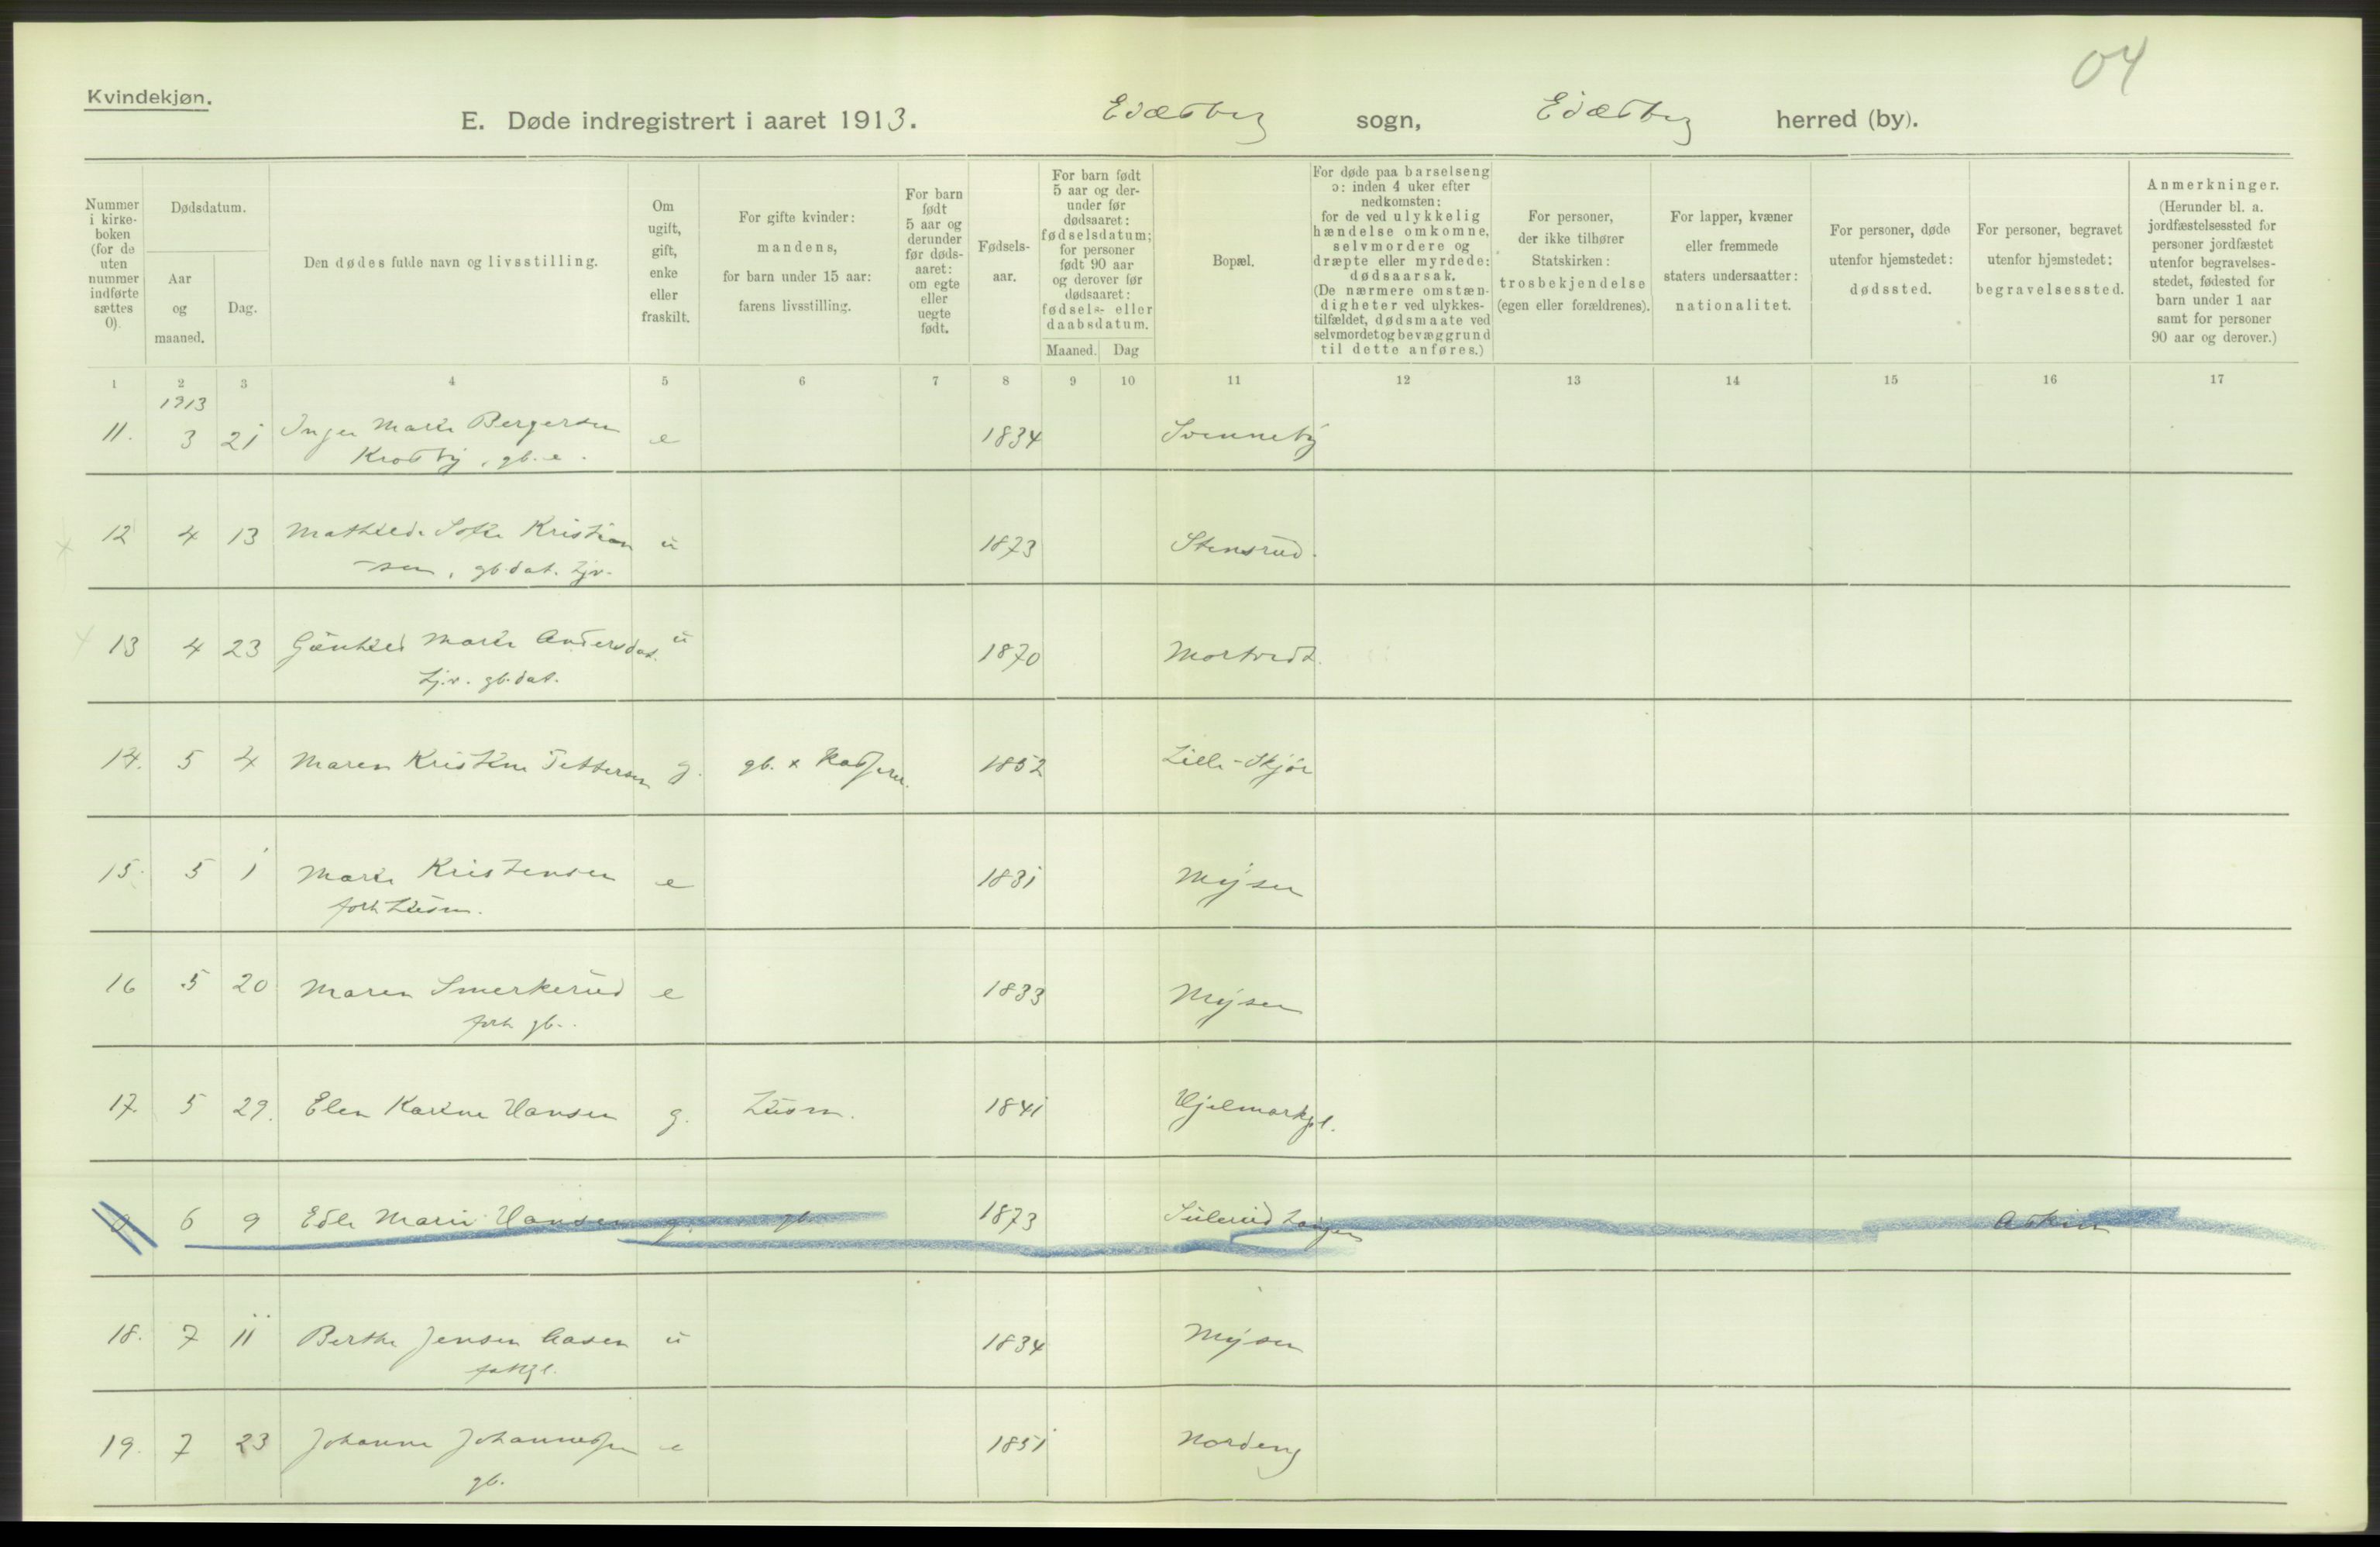 04
Kvindekjøn.
E. Døde indregistrert i aaret 1913. Eidsberg sogn, Eidsberg herred (by).
Nummer i kirkeboken (for de uten nummer indførte sættes 0).
Dødsdatum.
Aar og maaned.
Dag.
Den dødes fulde navn og livsstilling.
Om ugift, gift, enke eller fraskilt.
For gifte kvinder: mandens, for barn under 15 aar: farens livsstilling.
For barn født 5 aar og derunder før dødsaaret: om egte eller uegte født.
Fødselsaar.
For barn født 5 aar og derunder før dødsaaret: fødselsdatum; for personer født 90 aar og derover før dødsaaret: fødsels- eller daabsdatum.
Maaned. Dag
Bopæl.
For døde paa barselseng ɔ: inden 4 uker efter nedkomsten: for de ved ulykkelig hændelse omkomne, selvmordere og dræpte eller myrdede: dødsaarsak. (De nærmere omstændigheter ved ulykkestilfældet, dødsmaate ved selvmordet og bevæggrund til dette anføres.)
For personer, der ikke tilhører Statskirken: trosbekjendelse (egen eller forældrenes).
For lapper, kvæner eller fremmede staters undersaatter: nationalitet.
For personer, døde utenfor hjemstedet: dødssted.
For personer, begravet utenfor hjemstedet: begravelsessted.
Anmerkninger. (Herunder bl. a. jordfæstelsessted for personer jordfæstet utenfor begravelsesstedet, fødested for barn under 1 aar samt for personer 90 aar og derover.)
1 2 3 4 5 6 7 8 9 10 11 12 13 14 15 16 17
1913
11. 3 21 Inger Marie Bergersen e 1834 Svenneby
Krosby, gb. e.
12 4 13 Mathilde Sofie Kristian u 1873 Stensrud.
sen, gb.dat. tjv.
13 4 23 Gunhild Marie Andersdat. u 1870 Mortvedt.
tj.v. gb.dat.
14. 5 4 Maren Kristine Pettersen g. gb. x 1852 Lille-Skjør
15. 5 1 Marie Kristensen e 1831 Mysen
forh.
16 5 20 Maren Smerkerud e 1833 Mysen
forh gb.
17. 5 29. Elen Karine Hansen g. 1841
0 6 9 Edle Marie Hansen g. gb. 1873 Askim
18. 7 11 Berthe Jensen Aasen u 1834 Mysen
fattgl.
19. 7 23 Johanne Johannessen e 1851 Nordeng
gb.